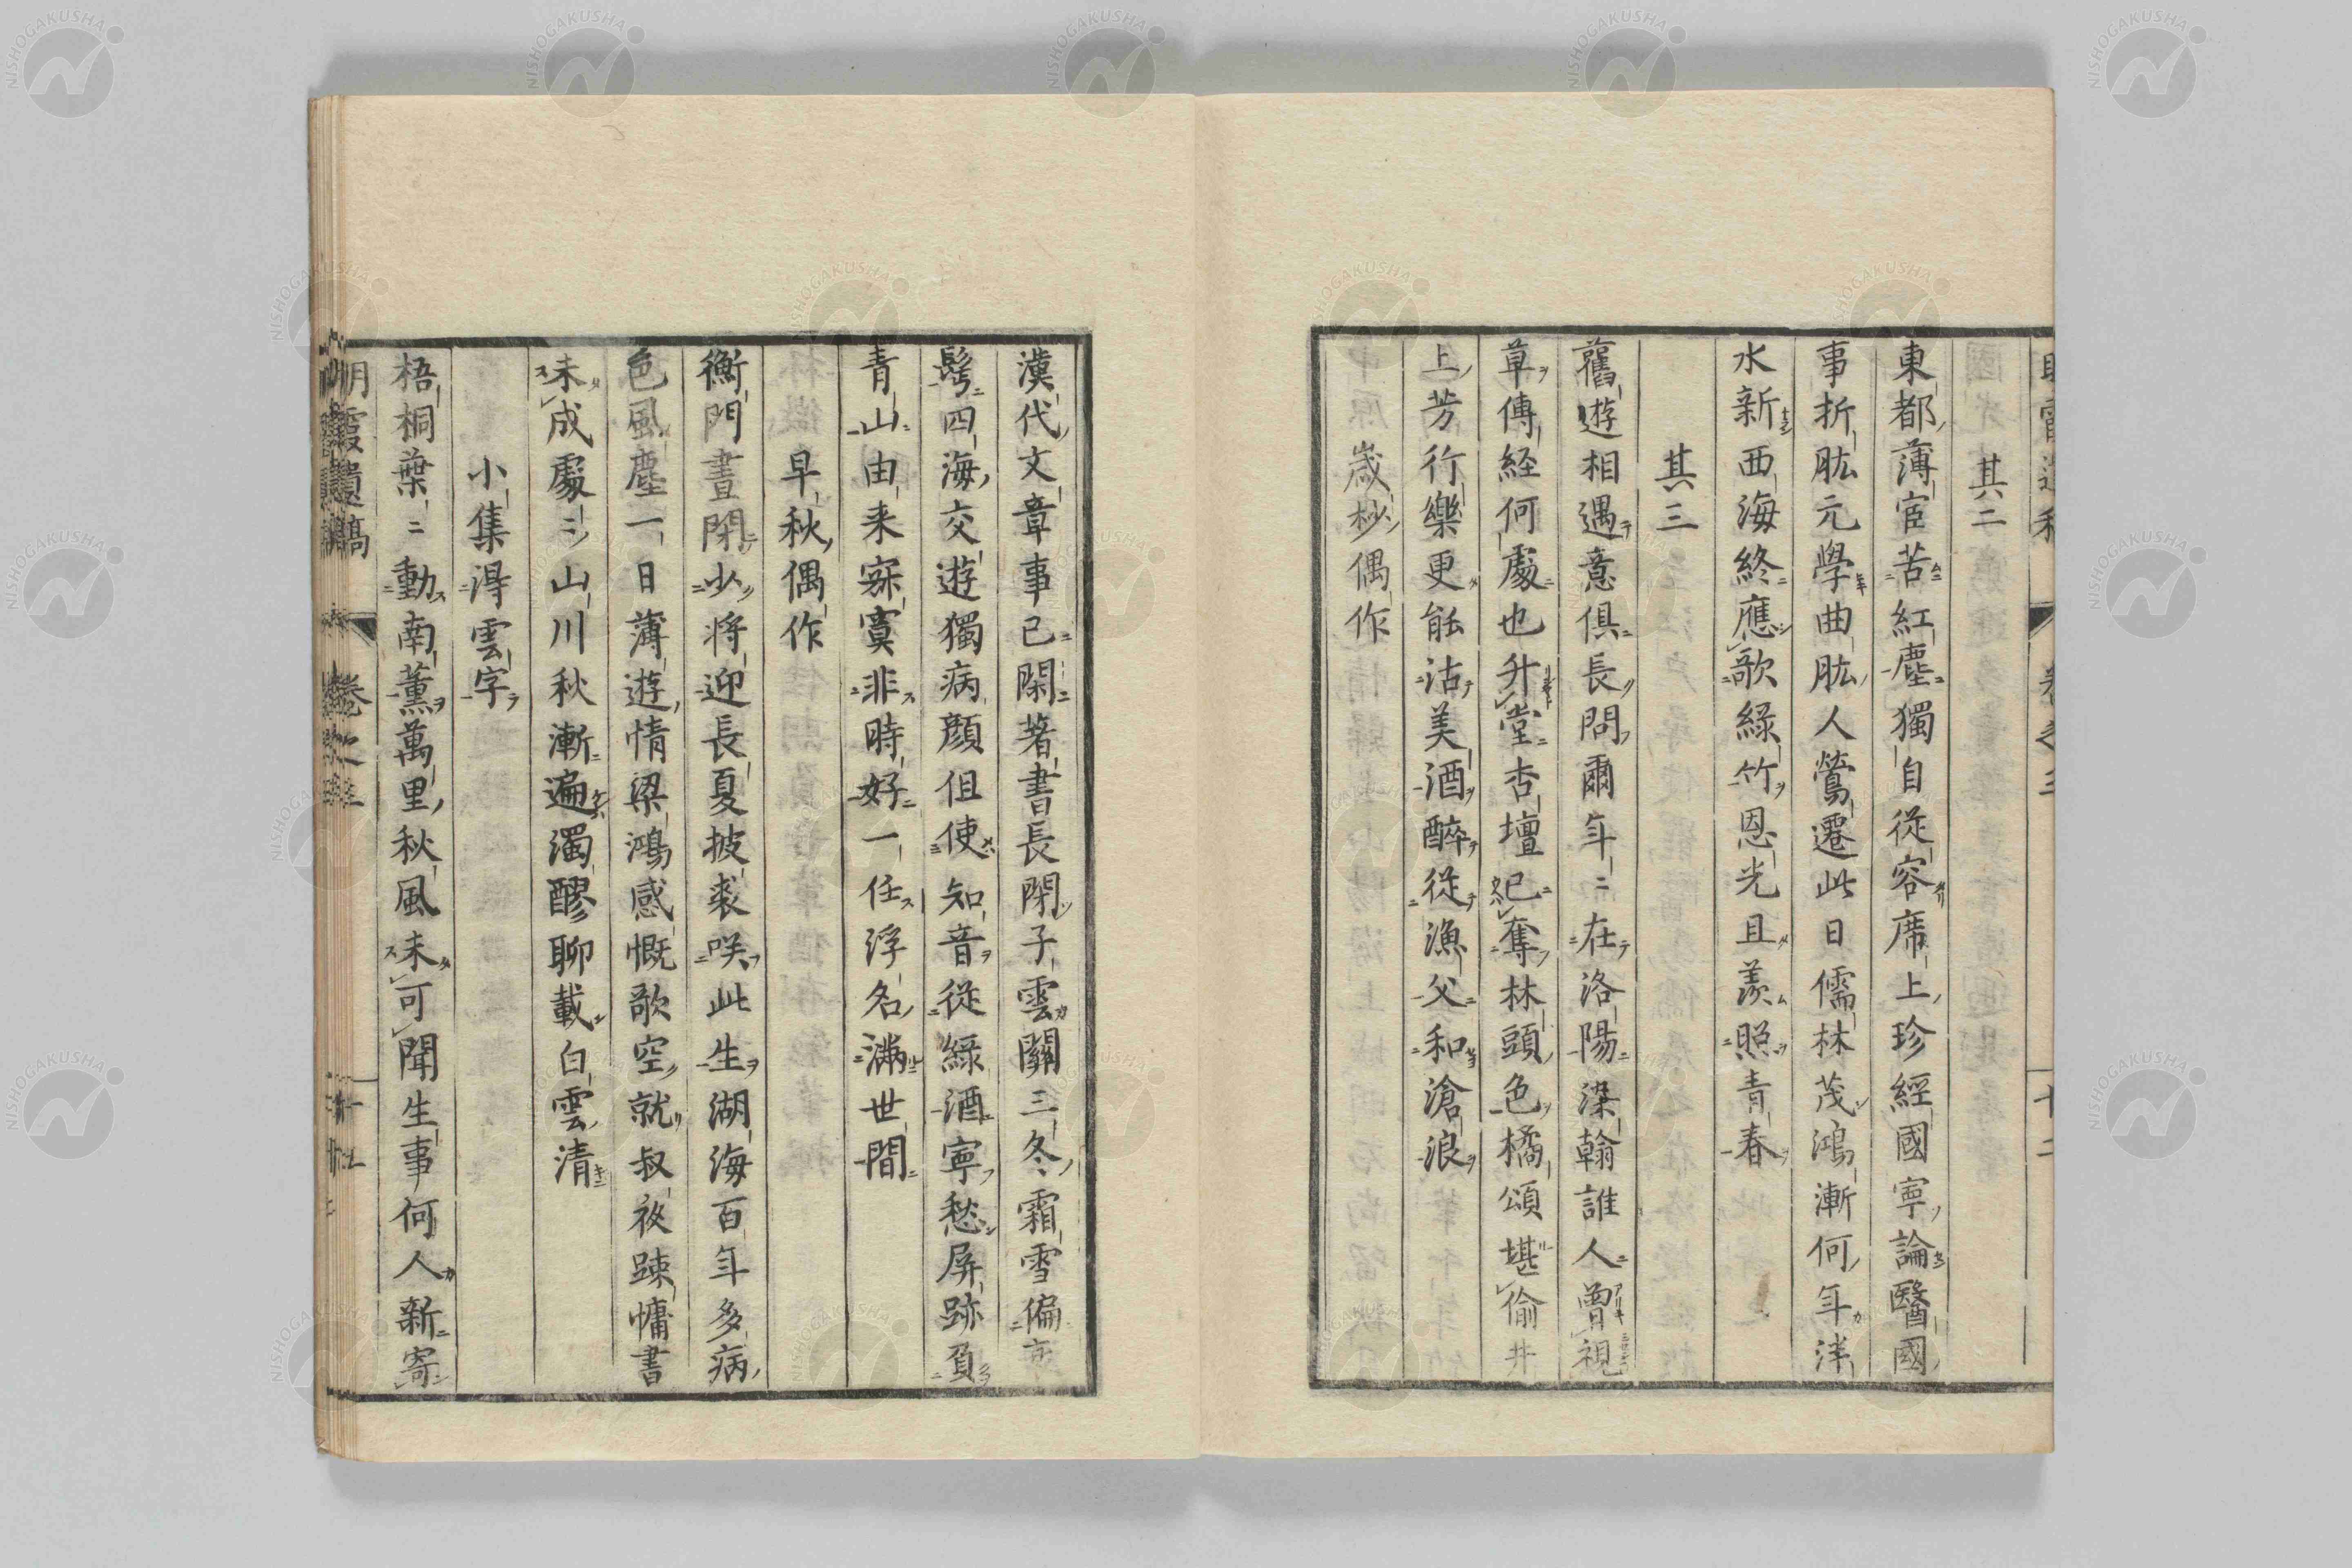 其二
東都薄宦苦紅塵獨自從容席上珍經國寧論醫國
事折肱元學曲肱人鶯遷此日儒林茂鴻漸何年泮
水新西海終應歌綠竹恩光且羨照青春
其三
舊遊相遇意俱長問爾年〻在洛陽染翰誰人曾視
草傳經何處也升堂杏壇已奪林頭色橘頌堪偷井
上芳行樂更能沽美酒醉從漁父和滄浪
歲杪偶作
漢代文章事已閑著書長閉子雲關三冬霜雪偏
髩四海交遊獨病顏但使知音從綠酒寧愁屏跡負
青山由来寂寞非時好一任浮名滿世間
早秋偶作
衡門晝閉少將迎長夏披裘咲此生湖海百年多病
色風塵一日薄遊情梁鴻感慨歌空就叔夜踈慵書
未成處〻山川秋漸遍濁醪聊載白雲清
小集得雲字
梧桐葉〻動南薰萬里秋風未可聞生事何人新寄
明霞遺稿 卷之三
NISHOGAKUSHA